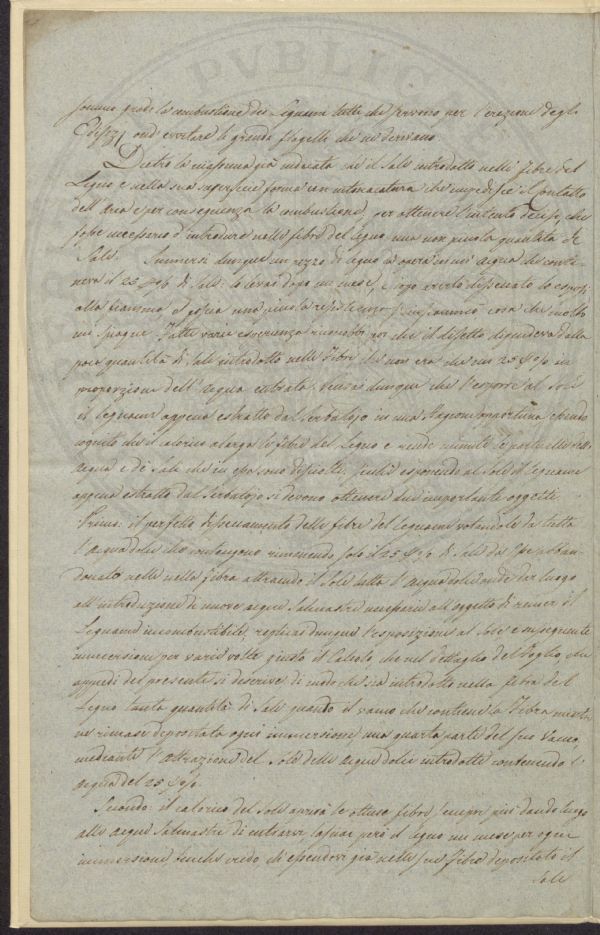 PUBLIC
sommo grado la combustione dei Legnami tutti che servono per l'erezione degli
Edifizj, ond' evitare le grandi flagelli che ne derivano
Dietro la massima già indicata che il Sale introdotto nelle Fibre del
Legno e nella sua superficie forma con intonacatura che impedisce il contatto
dell'Area e per conseguenza la combustione, per ottenere l'intento decisi, che
fosse necessario d'introdure nelle fibre del Legno una non piccola quantità di
Sale. Immersi dunque un pezzo di Legno d'opera in un' acqua che conte
neva il 25 p% di Sale: lo levai dopo un mese, e dopo averlo dissecato lo esposi
alla fiamma, e dopo una piccola resistenza s'infiammò cosa che molto
mi spiaque. Fatte varie esperienze riconobbi poi che il difetto dipendeva dalla
poca quantità di Sale introdotto nelle Fibre che non era che un 25 p% in
proporzione dell'acqua entrata. Pensai dunque che l'esporre al Sole
il Legname appena estratto dal Serbatojo in una Stagione opportuna essendo
cognito che il calorico alarga le fibre del Legno e rende minute le particelle dell'
acqua e di Sale che in essa sono disciolte, quindi esponendo al Sole il Legname
appena estratto dal Serbatojo si devono ottenere due importante oggetti
Primo: il perfetto dissecamento delle fibre del Legname votandole da tutta
l'acqua dolce che contengono rimanendo solo il 25 p% di Sale da essa abban-
donato nelle nella fibra attraendo il Sole tutta l'acqua dolce onde dar luogo
all'introduzione di nuove acque Salmastre necessarie all'oggetto di render il
Legname incombustibile, replicai dunque l'esposizione al Sole e susseguente
immersione per varie volte giusto il Calcolo, che nel dettaglio del Foglio, che
appiedi del presente si descrive di modo che sia introdotto nella fibra del
Legno tanta quantità di Sale quando il vano che contiene la Fibra mentre
ne rimase depositata ogni immersione una quarta parte del suo Vano,
mediante l'attrazione del Sole delle acque dolci introdotte contenendo l'
acqua del 25 p%.
Secondo: il calorico del Sole aprirà le ottuse fibre sempre più dando luogo
alle acque Salmastre di entrarvi, lasciai però il Legno un mese per ogni
immersione benchè vedo, ch'essendovi già nelle sue Fibre depositato il
Sale